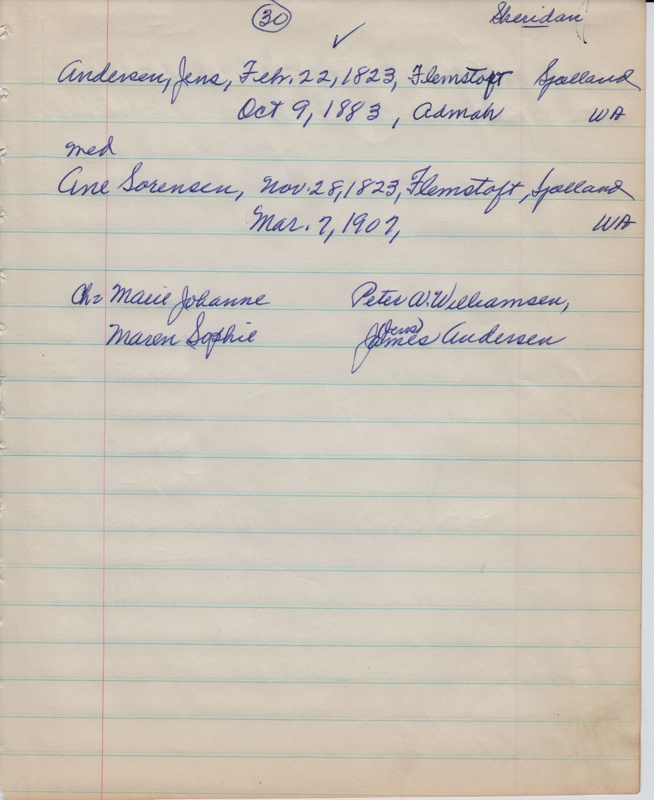 30 Sheridan
✓
Andersen, Jens, Feb. 22, 1823, Flemstoft Sjælland
Oct 9, 1883, Admah WA
med
Ane Sorensen, Nov. 28, 1823, Flemstoft, Sjælland
Mar. 7, 1907, WA
Ch= Marie Johanne Peter W. Williamsen,
(Jens)
Maren Sophie James Andersen